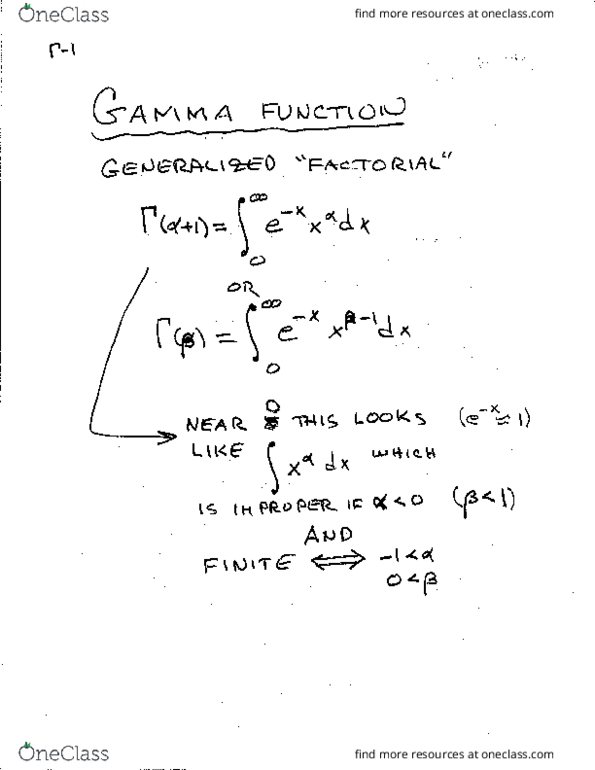 OneClass
find more resources at oneclass.com
Γ-1
GAMMA FUNCTION
GENERALIZED "FACTORIAL"
Γ(α+1) = ∫₀^∞ e^-x x^α dx
OR
Γ(β) = ∫₀^∞ e^-x x^β-1 dx
NEAR 0 THIS LOOKS (e^-x ≈ 1)
LIKE ∫ x^α dx WHICH
IS IMPROPER IF α < 0 (β < 1)
AND
FINITE ⟺ -1 < α
0 < β
OneClass
find more resources at oneclass.com